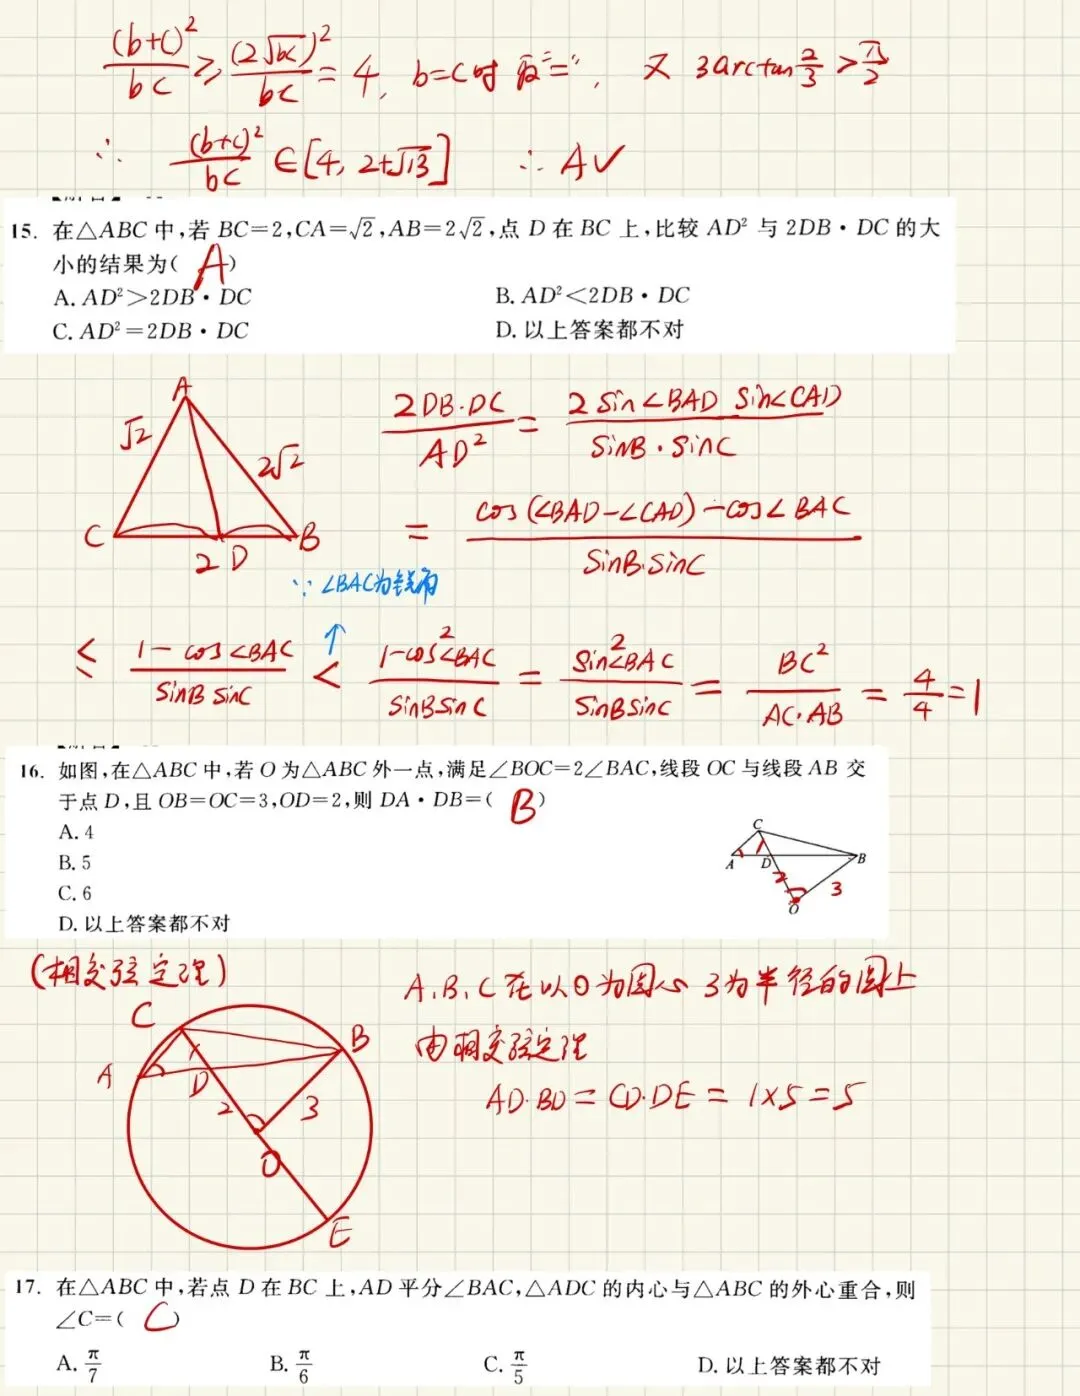 (b+c)²/bc ≥ (2√bc)²/bc = 4, b=c时取"=", 又 3arctan 2/3 > π/2
∴ (b+c)²/bc ∈ [4, 2+√13] ∴ A✓
15. 在△ABC中,若BC=2,CA=√2,AB=2√2,点D在BC上,比较AD²与2DB·DC的大
小的结果为( A )
A. AD²>2DB·DC B. AD²<2DB·DC
C. AD²=2DB·DC D. 以上答案都不对
A
√2 2√2
C 2 D B
2DB·DC/AD² = 2sin∠BAD sin∠CAD/sinB·sinC
= cos(∠BAD-∠CAD)-cos∠BAC/sinB·sinC
∵ ∠BAC为锐角
≤ 1-cos∠BAC/sinB sinC < 1-cos²∠BAC/sinBsinC = sin²∠BAC/sinBsinC = BC²/AC·AB = 4/4 = 1
16. 如图,在△ABC中,若O为△ABC外一点,满足∠BOC=2∠BAC,线段OC与线段AB交
于点D,且OB=OC=3,OD=2,则DA·DB=( B )
A. 4
B. 5
C. 6
D. 以上答案都不对
C
A 1 D B
2 3
O
(相交弦定理)
A、B、C在以O为圆心 3为半径的圆上
由相交弦定理
AD·BD = CD·DE = 1×5 = 5
C
B
A 1 D
2 3
O
E
17. 在△ABC中,若点D在BC上,AD平分∠BAC,△ADC的内心与△ABC的外心重合,则
∠C=( C )
A. π/7 B. π/6 C. π/5 D. 以上答案都不对